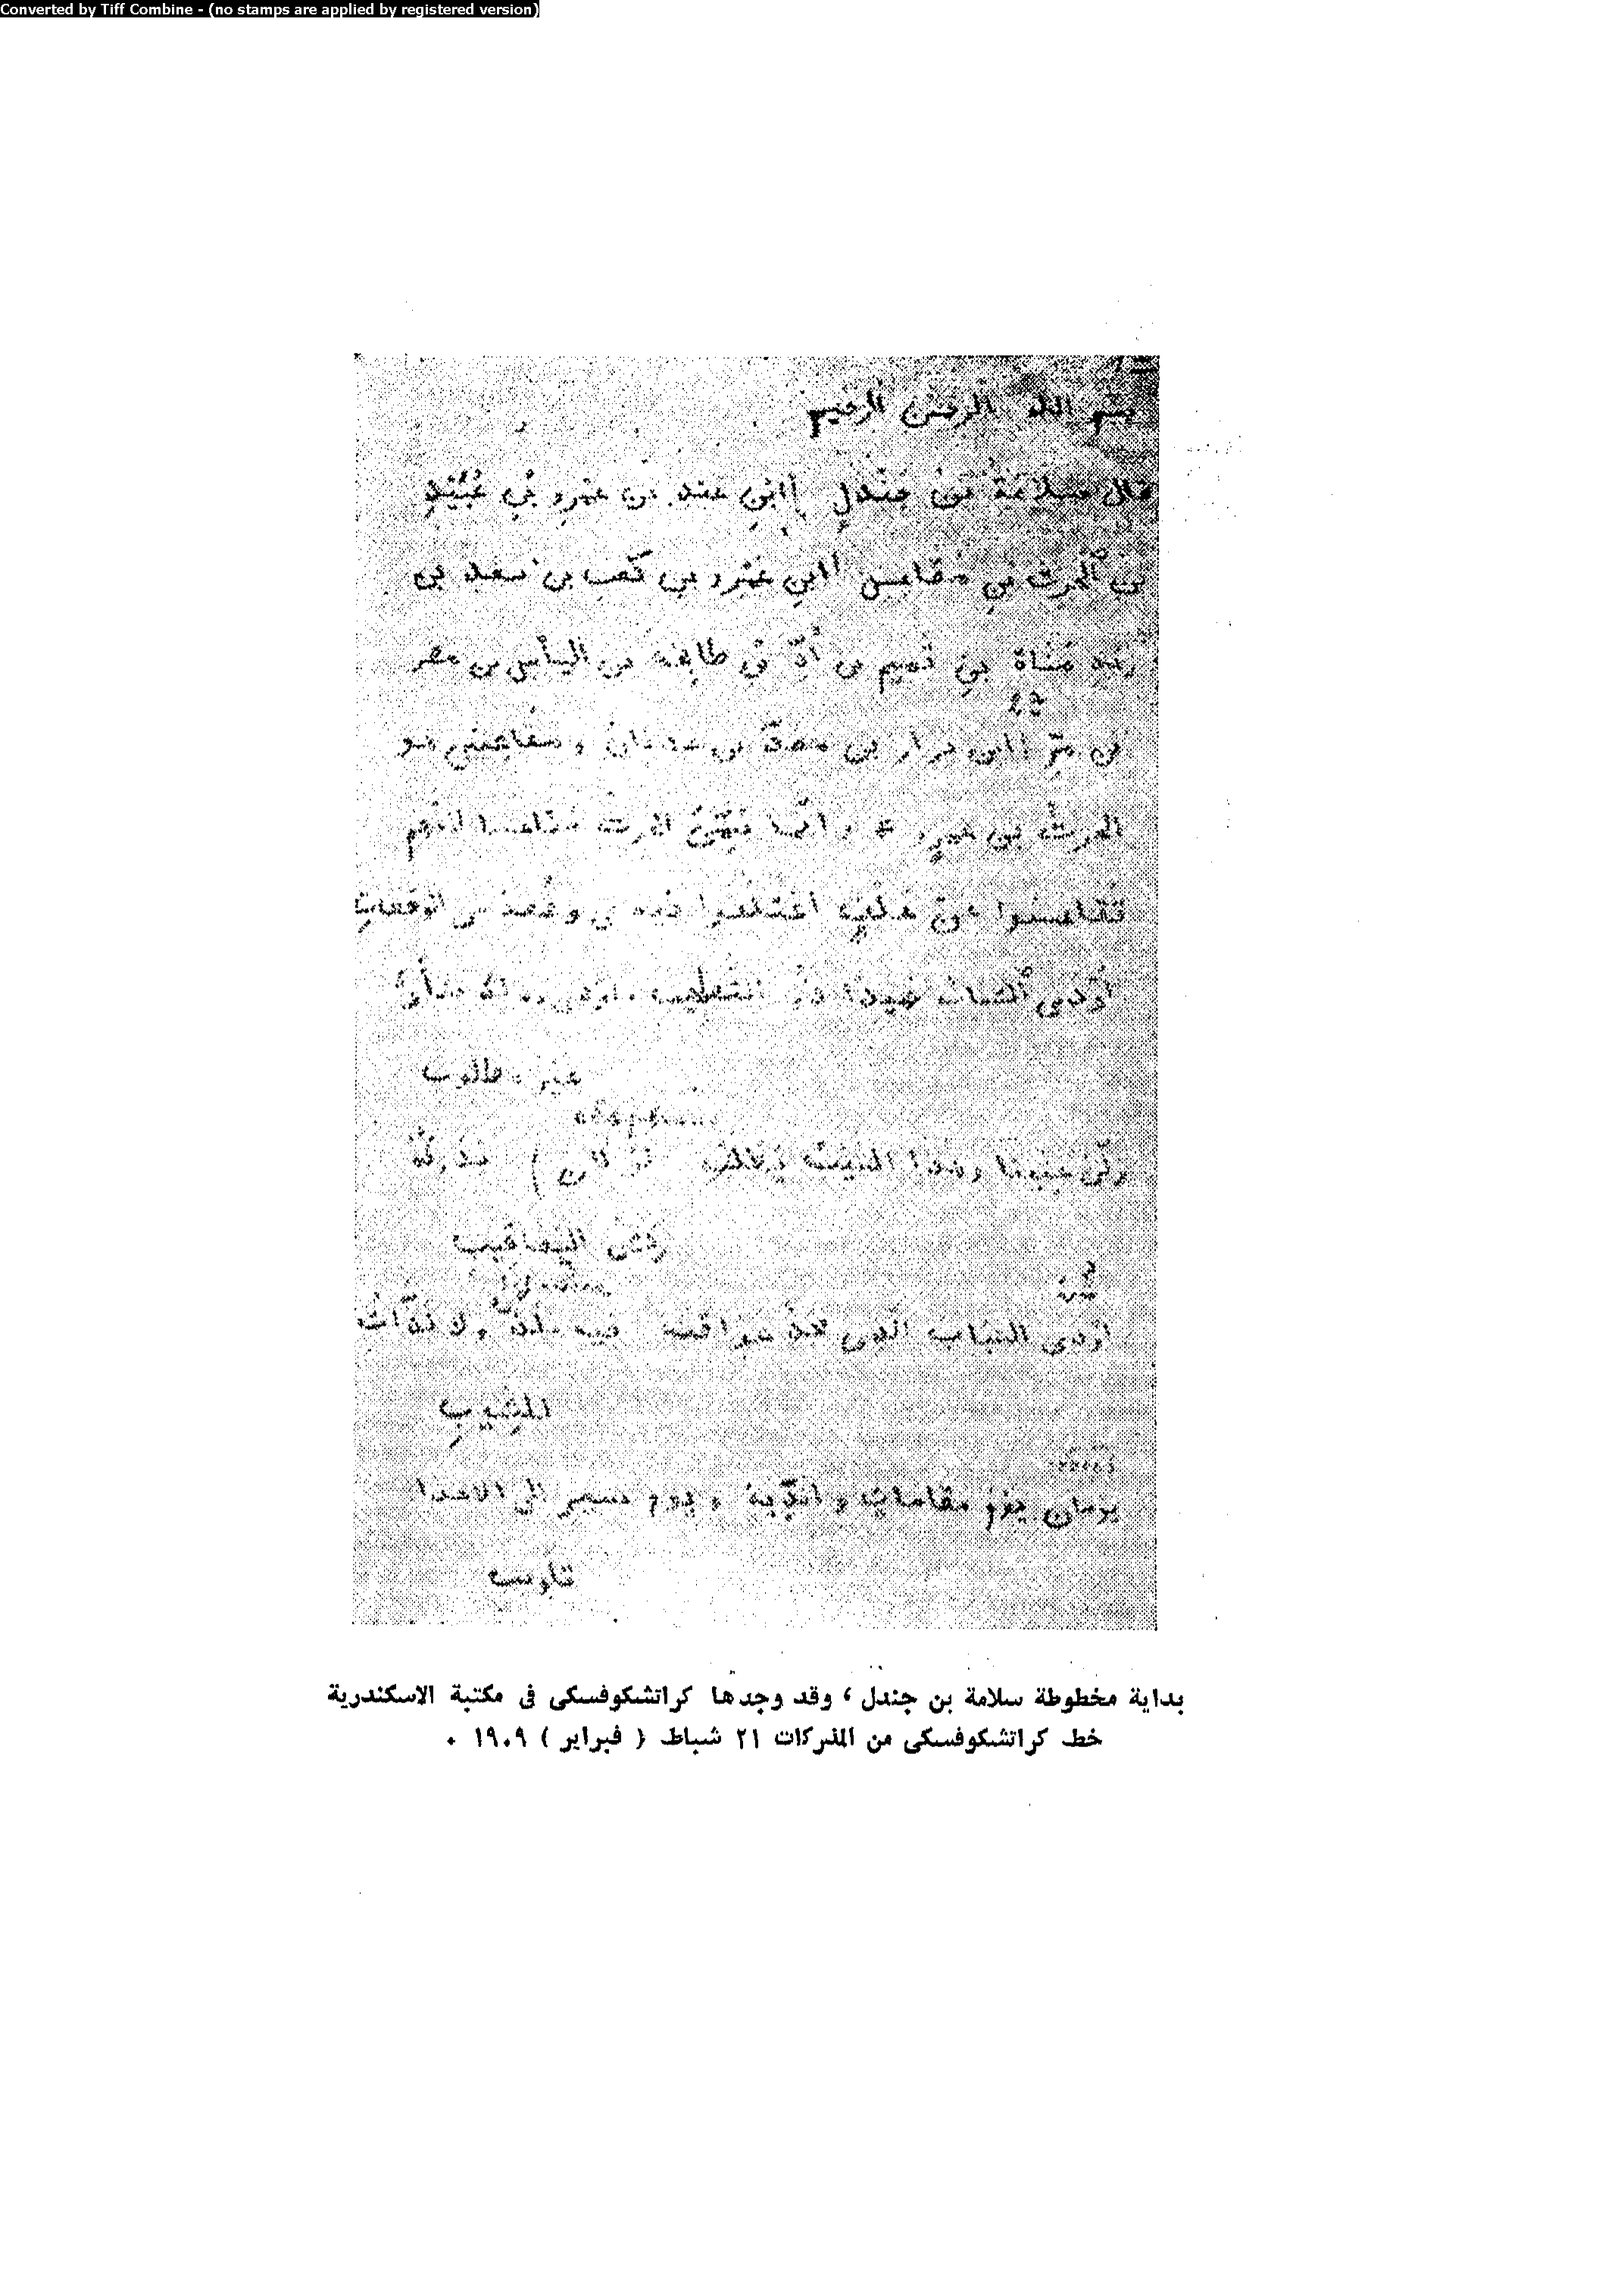 Converted by Tiff Combine - (no stamps are applied by registered version)
بسم الله الرحمن الرحيم
قال سلامة بن جندل || ابن عبد بن عمرو بن عُبَيْدِ
بن الحرث بن مقاعس || ابن عمرو بن كعب بن سعد بن
زيد مناة بن تميم بن أدّ بن طابخة بن الياس بن مضر
|| ابن نزار بن معدّ بن عدنان ومقاعس هو
الحرث بن عمرو وانّما سُمّى الحرث مقاعسا لانهم
تقاعسوا عن حلف
أودى الشباب حميدا ذو التعاجيب أودى وذلك شأوٌ
غير مطلوب
ولّى حثيثا وهذا الشيب يطلبه لو كان يدركه
ركض اليعاقيب
اودى الشباب الذى مجد عواقبه فيه نلذّ ولا لذّات
للشيب
يومان يوم مقامات واندية ويوم سير الى الاعدا
تأويب
بداية مخطوطة سلامة بن جندل ، وقد وجدها كراتشكوفسكى فى مكتبة الاسكندرية
خط كراتشكوفسكى من المذكرات ٢١ شباط ( فبراير ) ١٩٠٩ .